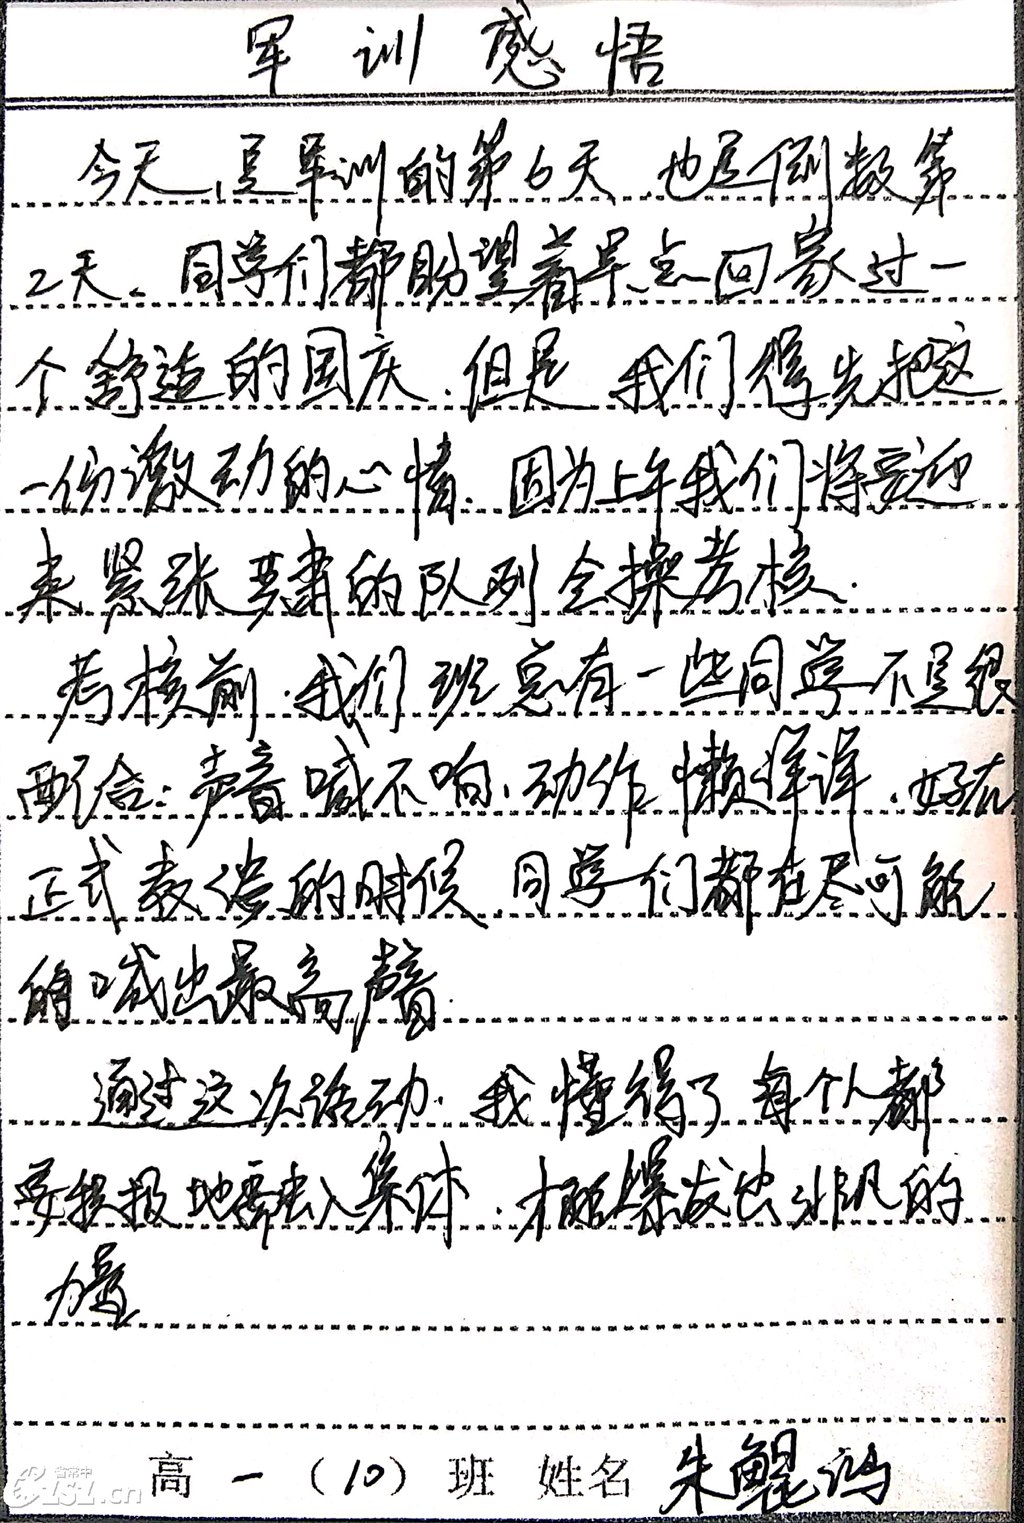 军训感悟
今天，是军训的第6天，也是倒数第
2天。同学们都盼望着早点回家过一
个舒适的国庆，但是我们得先把这
一份激动的心情，因为上午我们将要迎
来紧张严肃的队列会操考核。
考核前，我们班总有一些同学不是很
配合：声音喊不响，动作懒洋洋，好在
正式教练的时候，同学们都在尽可能
的喊出最高声音。
通过这次活动，我懂得了每个人都
要积极地融入集体，才能爆发出非凡的
力量
高一（10）班 姓名 朱鲲
省常中
LSL.cn